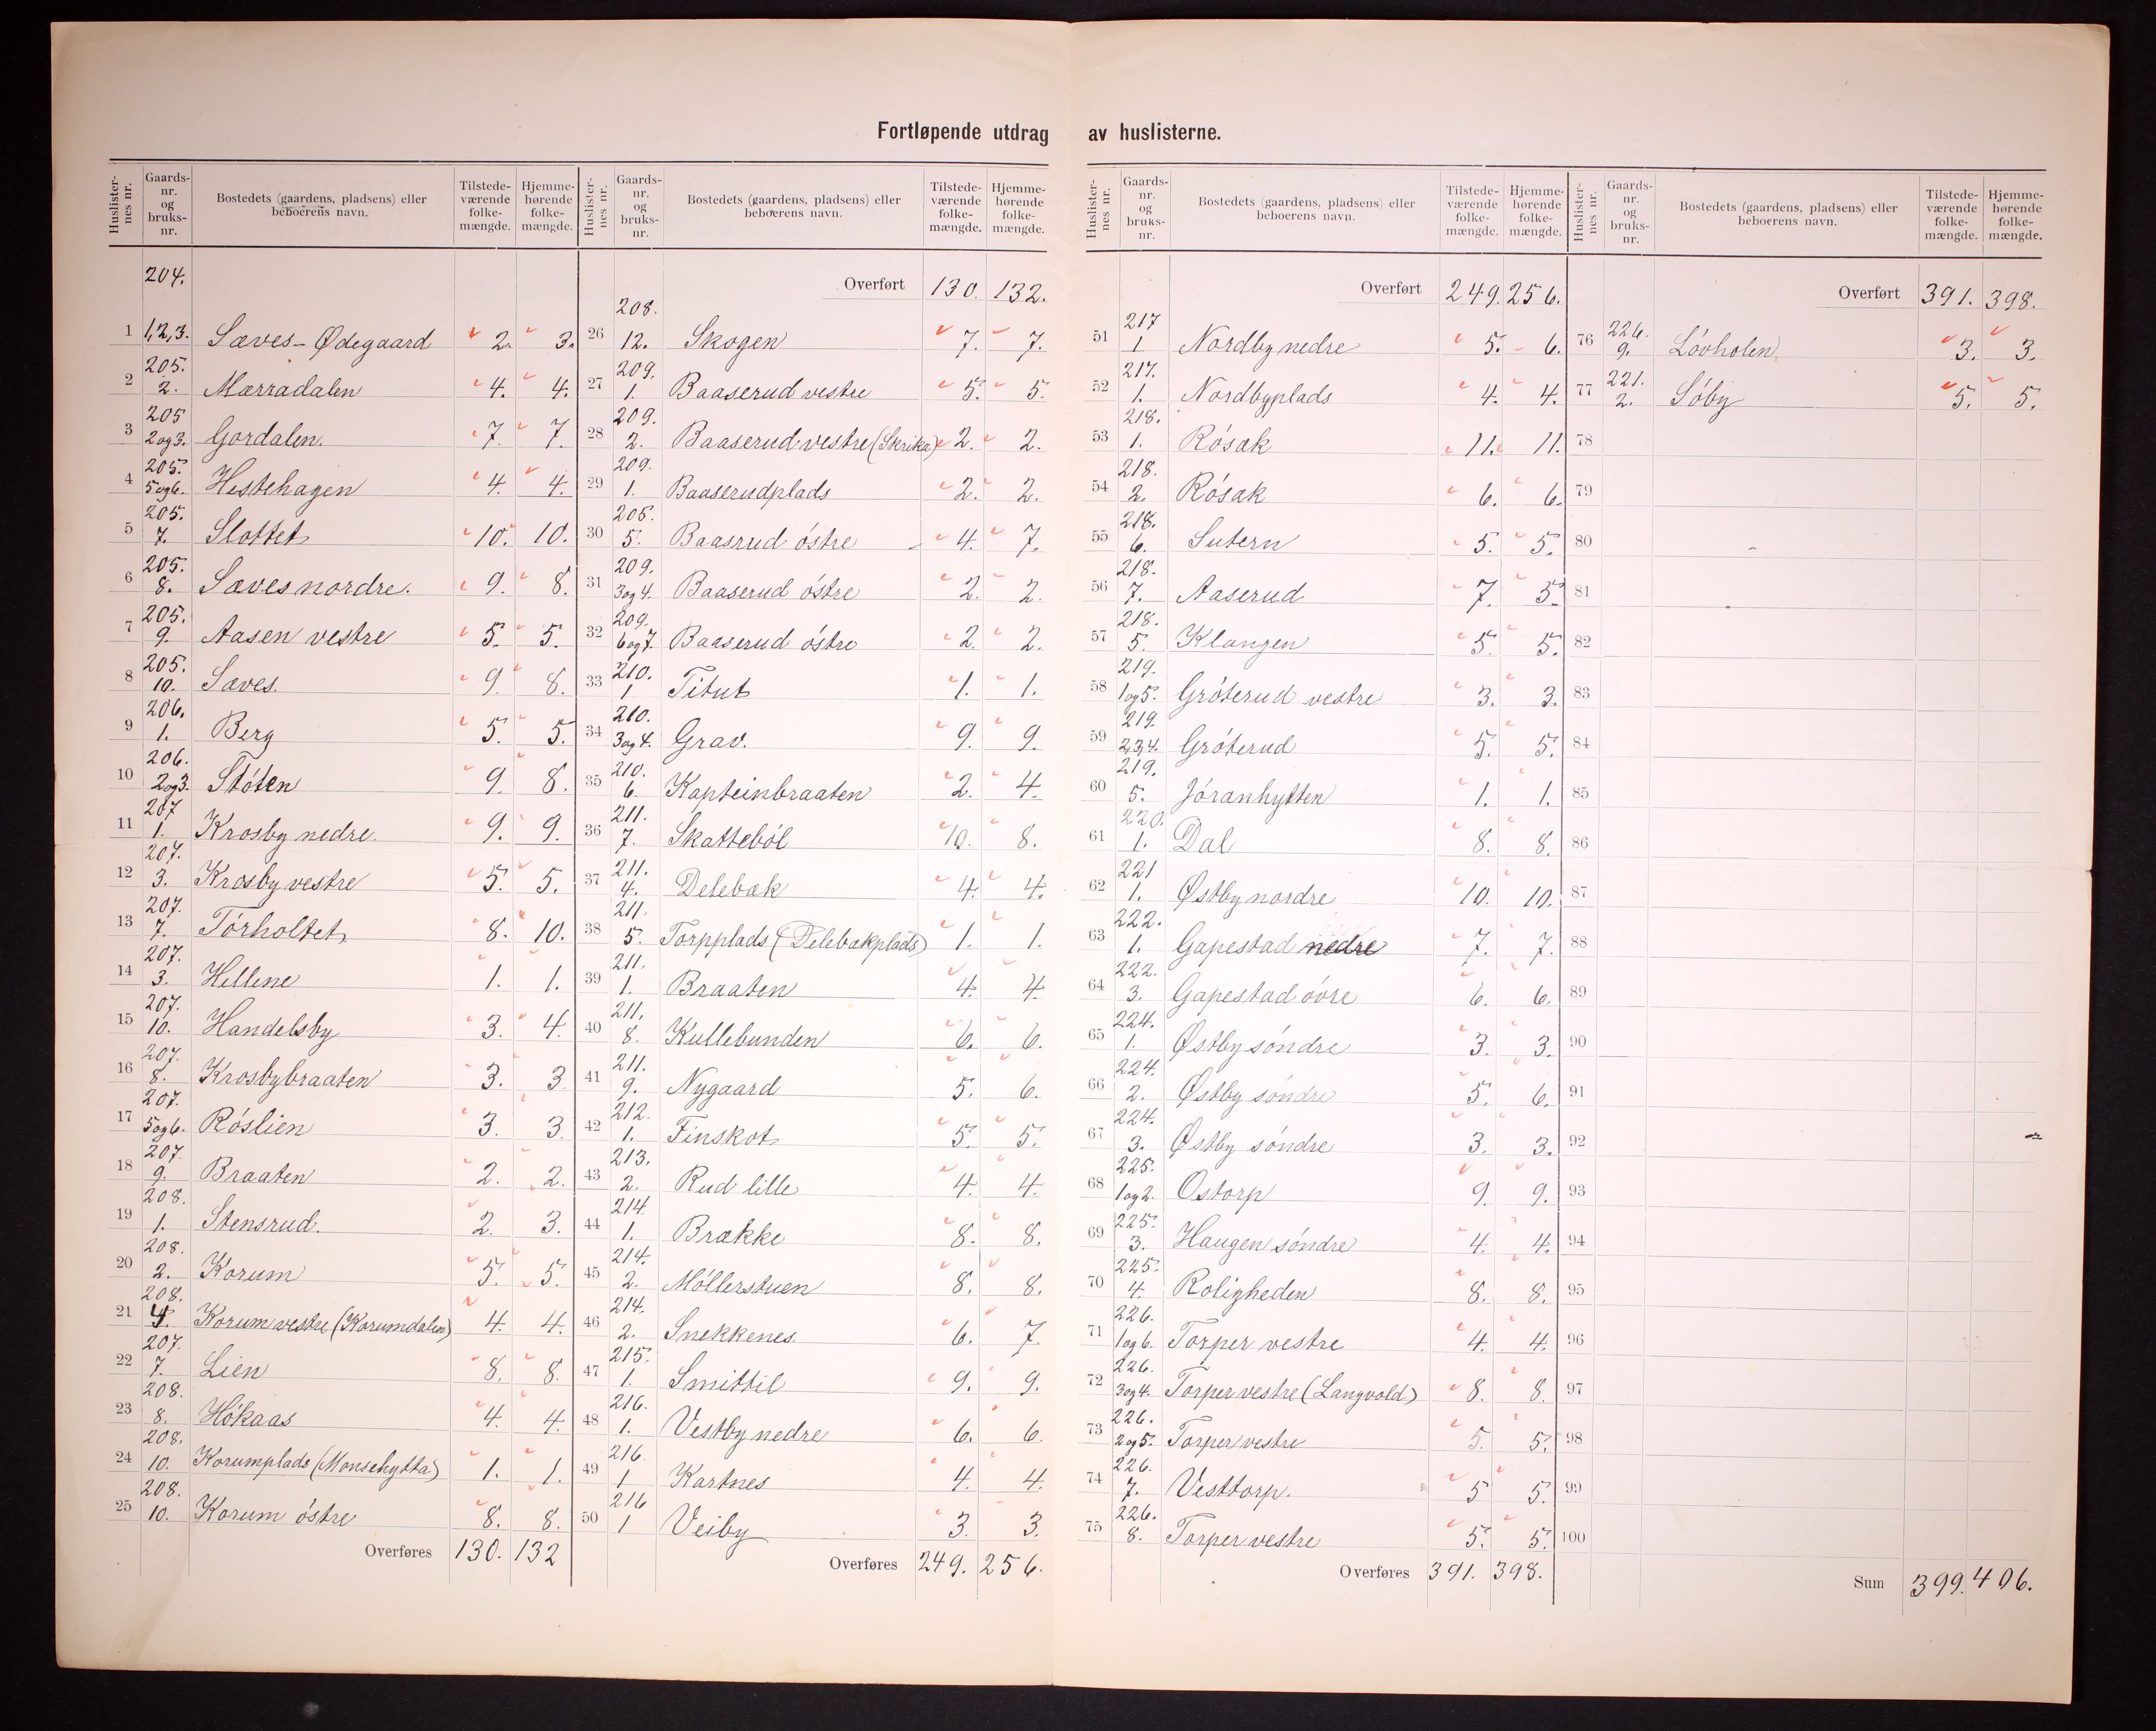 Fortløpende utdrag av huslisterne.
Huslister-nes nr. | Gaards-nr. og bruks-nr. | Bostedets (gaardens, pladsens) eller beboerens navn. | Tilstede-værende folke-mængde. | Hjemme-hørende folke-mængde.
204.
1 | 1,2,3. | Sæves-Ødegaard | 2. | 3.
2 | 205. 2. | Mærradalen | 4. | 4.
3 | 205 2og3. | Gordalen. | 7. | 7.
4 | 205. 5og6. | Hestehagen | 4. | 4.
5 | 205. 7. | Slottet | 10. | 10.
6 | 205. 8. | Sæves nordre. | 9. | 8.
7 | 205. 9. | Aasen vestre | 5. | 5.
8 | 205. 10. | Sæves. | 9. | 8.
9 | 206. 1. | Berg | 5. | 5.
10 | 206. 2og3. | Støten | 9. | 8.
11 | 207 1. | Krosby nedre. | 9. | 9.
12 | 207. 3. | Krosby vestre | 5. | 5.
13 | 207. 7. | Tórholtet | 8. | 10.
14 | 207. 3. | Hellene | 1. | 1.
15 | 207. 10. | Handelsby | 3. | 4.
16 | 207. 8. | Krosbybraaten | 3. | 3
17 | 207. 5og6. | Róslien | 3. | 3.
18 | 207. 9. | Braaten | 2. | 2.
19 | 208. 1. | Stensrud. | 2. | 3.
20 | 208. 2. | Korum | 5. | 5.
21 | 208. 4. | Korum vestre (Korumdalen) | 4. | 4.
22 | 207. 7. | Lien | 8. | 8.
23 | 208. 8. | Hókaas | 4. | 4.
24 | 208. 10. | Korumplads (Monsehytta) | 1. | 1.
25 | 208. 10. | Korum óstre | 8. | 8.
Overføres | 130. | 132
Huslister-nes nr. | Gaards-nr. og bruks-nr. | Bostedets (gaardens, pladsens) eller beboerens navn. | Tilstede-værende folke-mængde. | Hjemme-hørende folke-mængde.
Overført | 130. | 132.
26 | 208. 12. | Skogen | 7. | 7.
27 | 209. 1. | Baaserud vestre | 5. | 5.
28 | 209. 2. | Baaserud vestre (Skrika) | 2. | 2.
29 | 209. 1. | Baaserudplads | 2. | 2.
30 | 205. 5. | Baasrud óstre | 4. | 7.
31 | 209. 3og4. | Baaserud óstre | 2. | 2.
32 | 209. 6og7. | Baaserud óstre | 2. | 2.
33 | 210. 1 | Titut | 1. | 1.
34 | 210. 3og4. | Grav. | 9. | 9.
35 | 210. 6. | Kapteinbraaten | 2. | 4.
36 | 211. 7. | Skatteból | 10. | 8.
37 | 211. 4. | Delebæk | 4. | 4.
38 | 211. 5. | Torpplads (Delebækplads) | 1. | 1.
39 | 211. 1. | Braaten | 4. | 4
40 | 211. 8. | Kullebunden | 6. | 6.
41 | 211. 9. | Nygaard | 5. | 6.
42 | 212. 1. | Finskot | 5. | 5.
43 | 213. 2. | Rud lille | 4. | 4.
44 | 214 1. | Brække | 8. | 8.
45 | 214. 2. | Móllerstuen | 8. | 8.
46 | 214. 2. | Snekkenes | 6. | 7
47 | 215. 1. | Smittil | 9. | 9.
48 | 216. 1. | Vestby nedre | 6. | 6.
49 | 216. 1 | Kartnes | 4. | 4.
50 | 216 1 | Veiby | 3. | 3.
Overføres | 249. | 256.
Huslister-nes nr. | Gaards-nr. og bruks-nr. | Bostedets (gaardens, pladsens) eller beboerens navn. | Tilstede-værende folke-mængde. | Hjemme-hørende folke-mængde.
Overført | 249. | 256.
51 | 217 1 | Nordby nedre | 5. | 6.
52 | 217. 1. | Nordbyplads | 4. | 4.
53 | 218. 1. | Rósæk | 11. | 11.
54 | 218. 2. | Rósæk | 6. | 6.
55 | 218. 6. | Sutern | 5. | 5.
56 | 218. 7. | Aaserud | 7. | 5.
57 | 218. 5. | Klangen | 5. | 5.
58 | 219. 1og5. | Gróterud vestre | 3. | 3.
59 | 219. 2,3,4. | Gróterud | 5. | 5.
60 | 219. 5. | Jóranhytten | 1. | 1.
61 | 220. 1. | Dal | 8. | 8.
62 | 221 1. | Østby nordre | 10. | 10.
63 | 222. 1. | Gapestad nedre | 7. | 7.
64 | 222. 3. | Gapestad óvre | 6. | 6.
65 | 224. 1. | Østby sóndre | 3. | 3.
66 | 224. 2. | Østby sóndre | 5. | 6.
67 | 224. 3. | Østby sóndre | 3. | 3.
68 | 225. 1og2. | Ostorp | 9. | 9.
69 | 225. 3. | Haugen sóndre | 4. | 4.
70 | 225. 4. | Roligheden | 8. | 8.
71 | 226. 1og6. | Torper vestre | 4. | 4.
72 | 226. 3og4. | Torper vestre (Langvold) | 8. | 8.
73 | 226. 2og5. | Torper vestre | 5. | 5.
74 | 226. 7. | Vesttorp. | 5 | 5.
75 | 226. 8. | Torper vestre | 5. | 5.
Overføres | 391. | 398.
Huslister-nes nr. | Gaards-nr. og bruks-nr. | Bostedets (gaardens, pladsens) eller beboerens navn. | Tilstede-værende folke-mængde. | Hjemme-hørende folke-mængde.
Overført | 391. | 398.
76 | 226. 9. | Lóvholen | 3. | 3.
77 | 221. 2. | Sóby | 5. | 5.
78
79
80
81
82
83
84
85
86
87
88
89
90
91
92
93
94
95
96
97
98
99
100
Sum | 399. | 406.